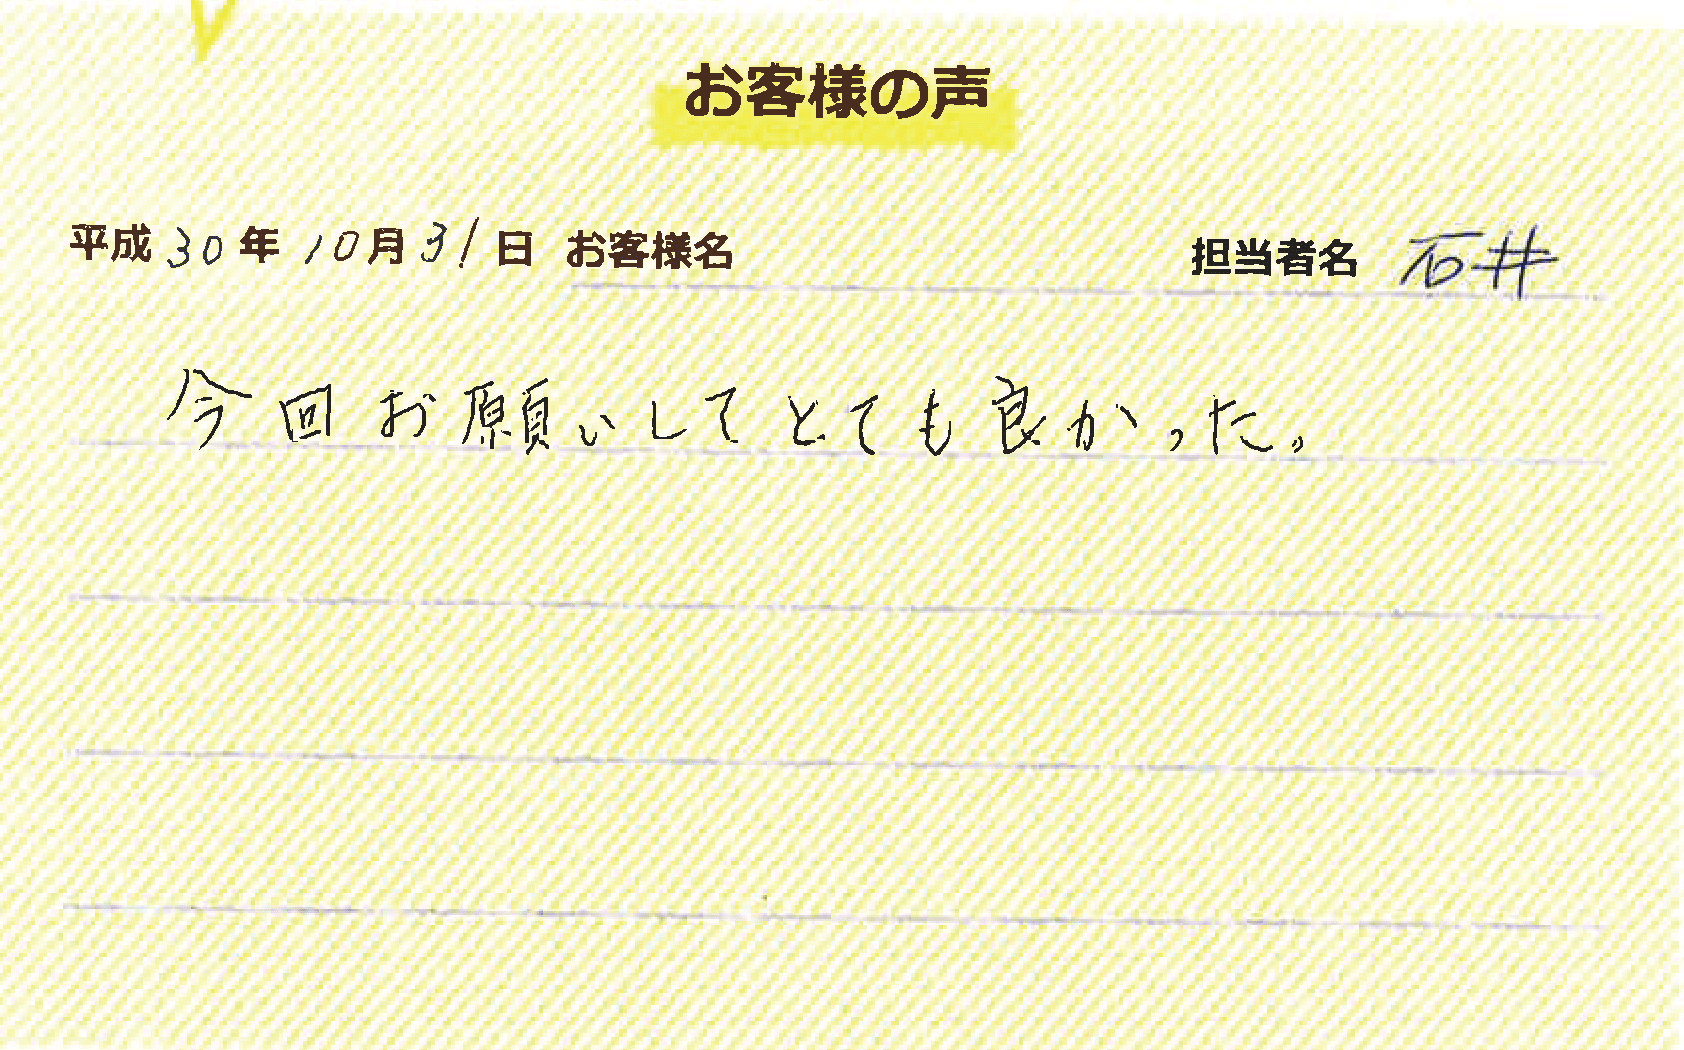 お客様の声
平成30年10月31日 お客様名 担当者名 石井
今回お願いしてとても良かった。